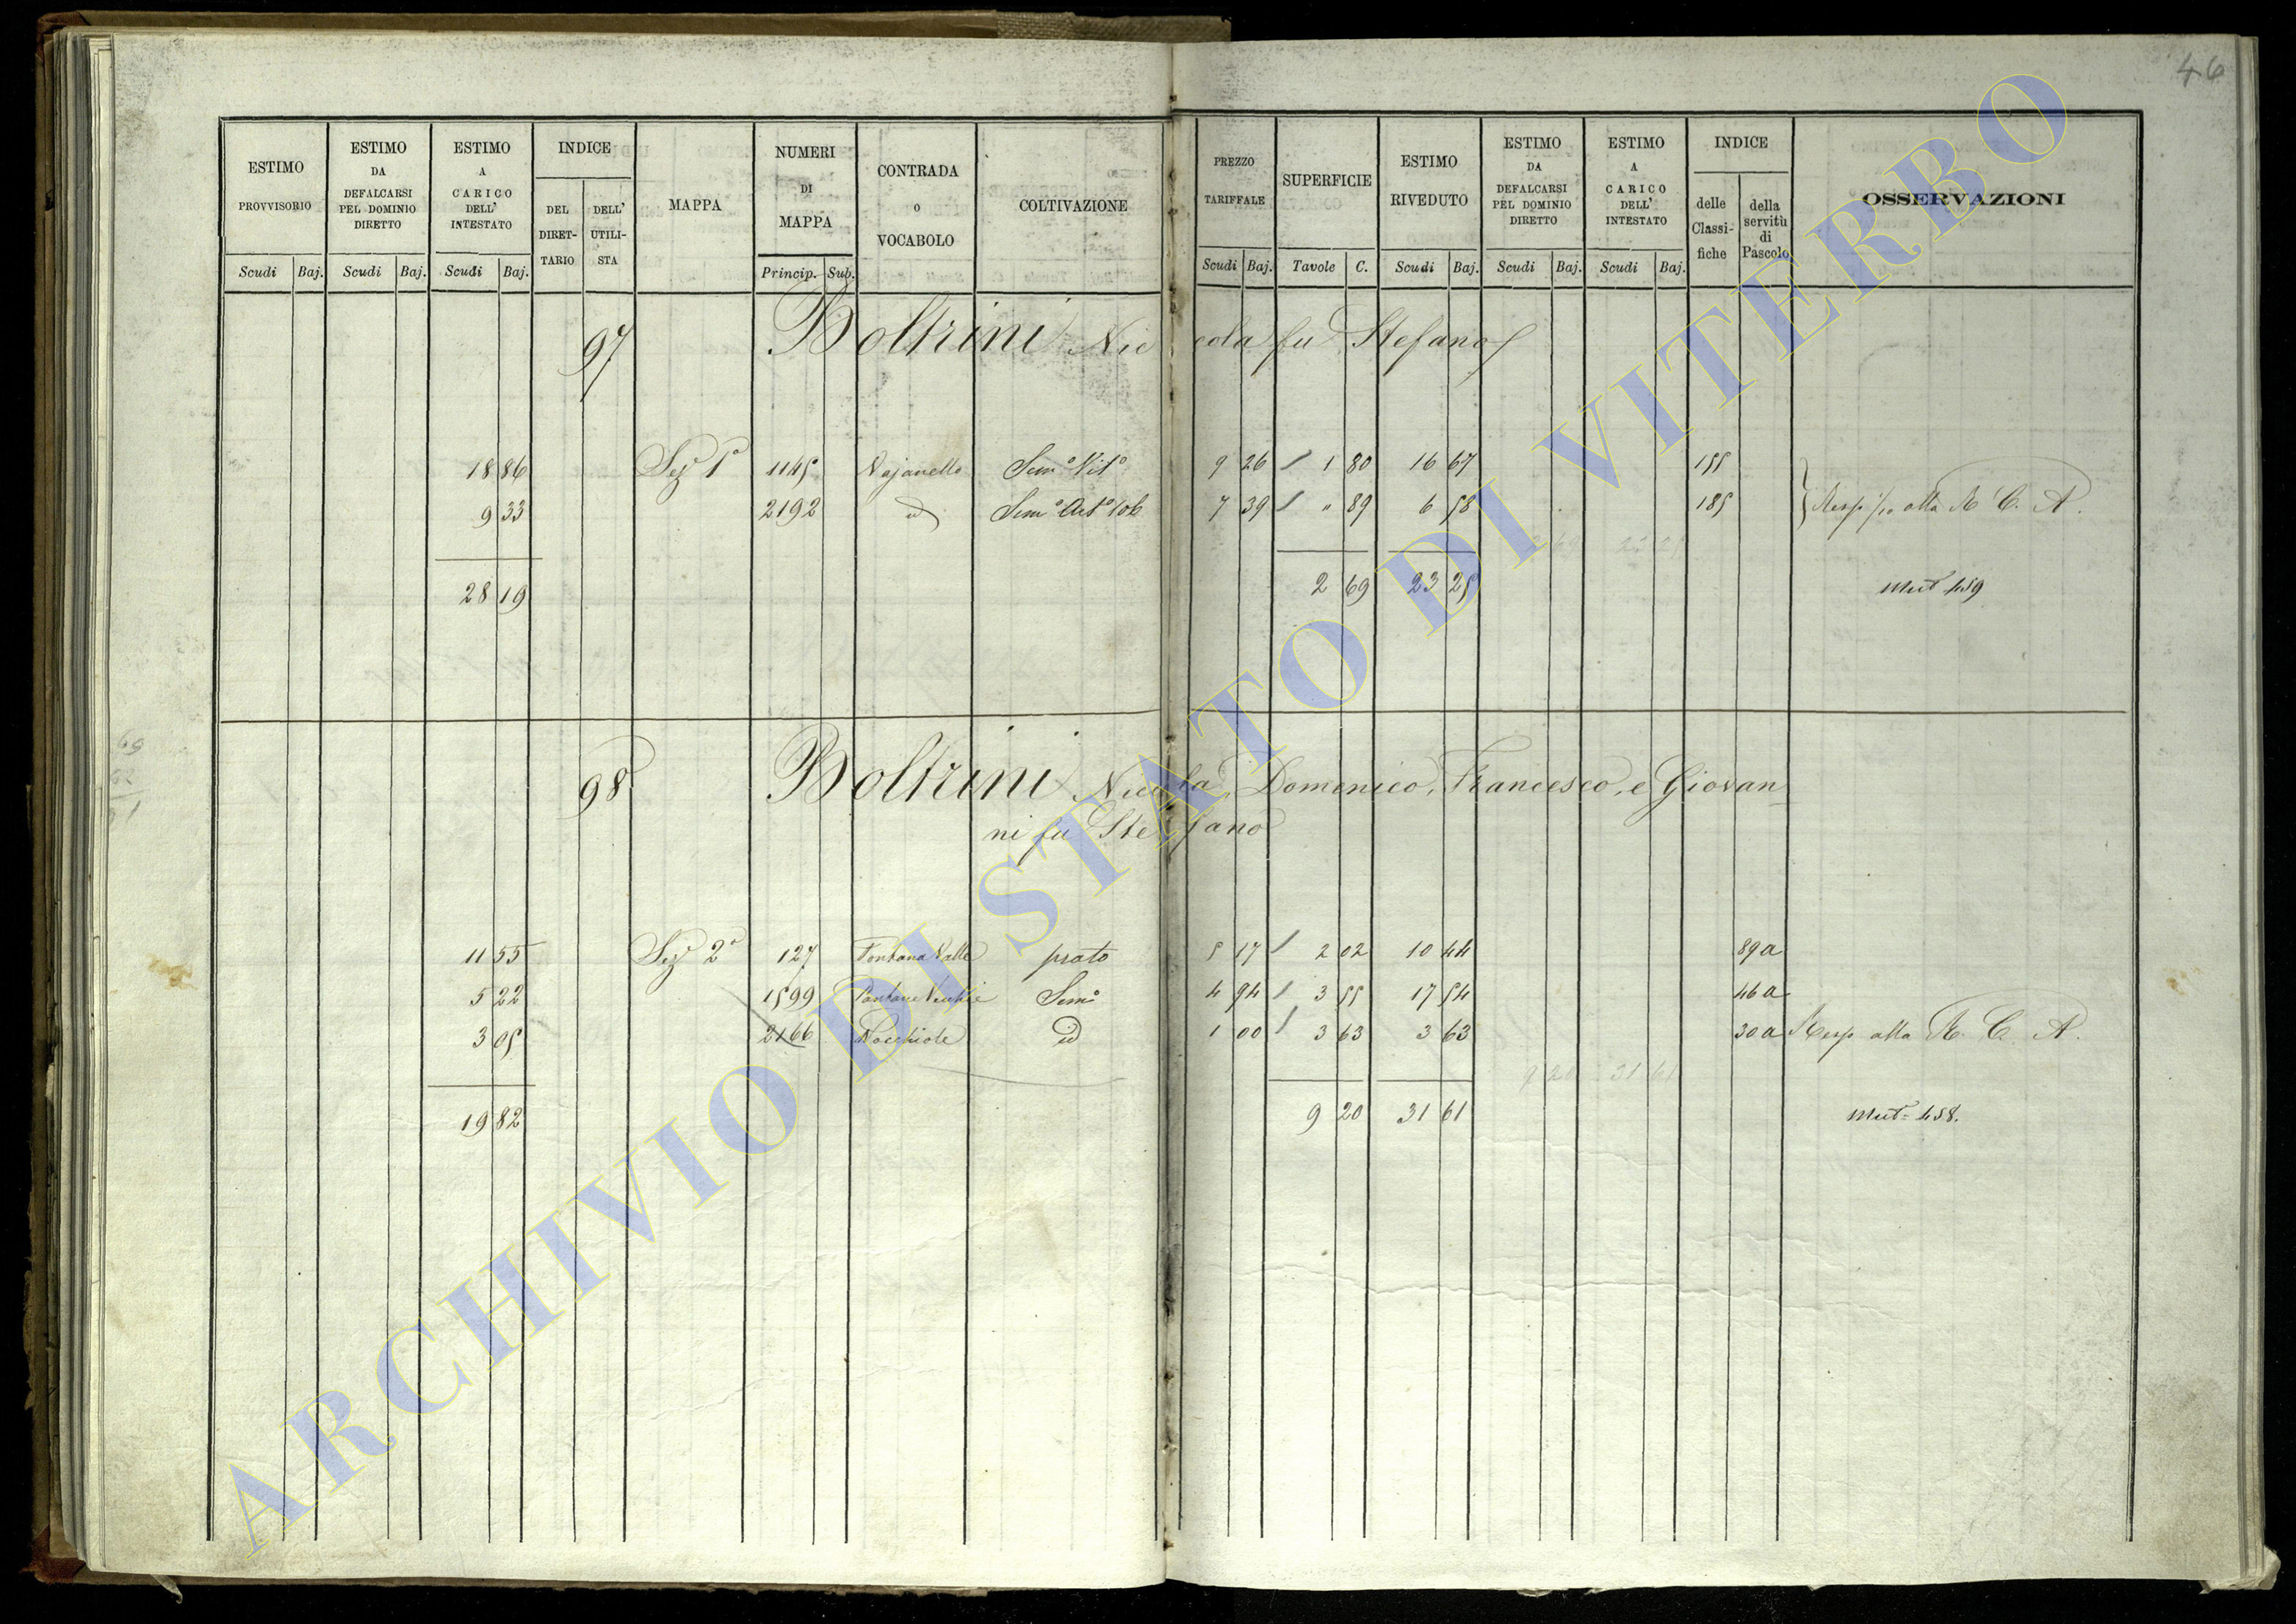 46
ESTIMO PROVVISORIO | ESTIMO DA DEFALCARSI PEL DOMINIO DIRETTO | ESTIMO A CARICO DELL' INTESTATO | INDICE | MAPPA | NUMERI DI MAPPA | CONTRADA o VOCABOLO | COLTIVAZIONE | PREZZO TARIFFALE | SUPERFICIE | ESTIMO RIVEDUTO | ESTIMO DA DEFALCARSI PEL DOMINIO DIRETTO | ESTIMO A CARICO DELL' INTESTATO | INDICE | OSSERVAZIONI
DEL DIRET-TARIO | DELL' UTILI-STA | delle Classi-fiche | della servitù di Pascolo
Scudi Baj. | Scudi Baj. | Scudi Baj. | Princip. Sub. | Scudi Baj. | Tavole C. | Scudi Baj. | Scudi Baj. | Scudi Baj.
97 Boltrini Nicola fu Stefano
18 86 Sez 1a 1145 Vajanello Sem.o Vit.o 9 26 1 80 16 67 155
9 33 2192 id Sem.o 7 39 " 89 6 58 185 alla R. C. A.
2 69 23 25
28 19 2 69 23 25 Mut 459
98 Boltrini Nicola, Domenico, Francesco, e Giovan
ni fu Stefano
11 55 Sez 2a 127 Fontana Valle prato 5 17 2 02 10 44 89 a
5 22 1599 Sem.o 4 94 3 55 17 54 46 a
3 05 2166 Nocchiole id 1 00 3 63 3 63 30 a Resp alla R. C. A.
9 20 31 61
19 82 9 20 31 61 Mut= 458.
69
ARCHIVIO DI STATO DI VITERBO